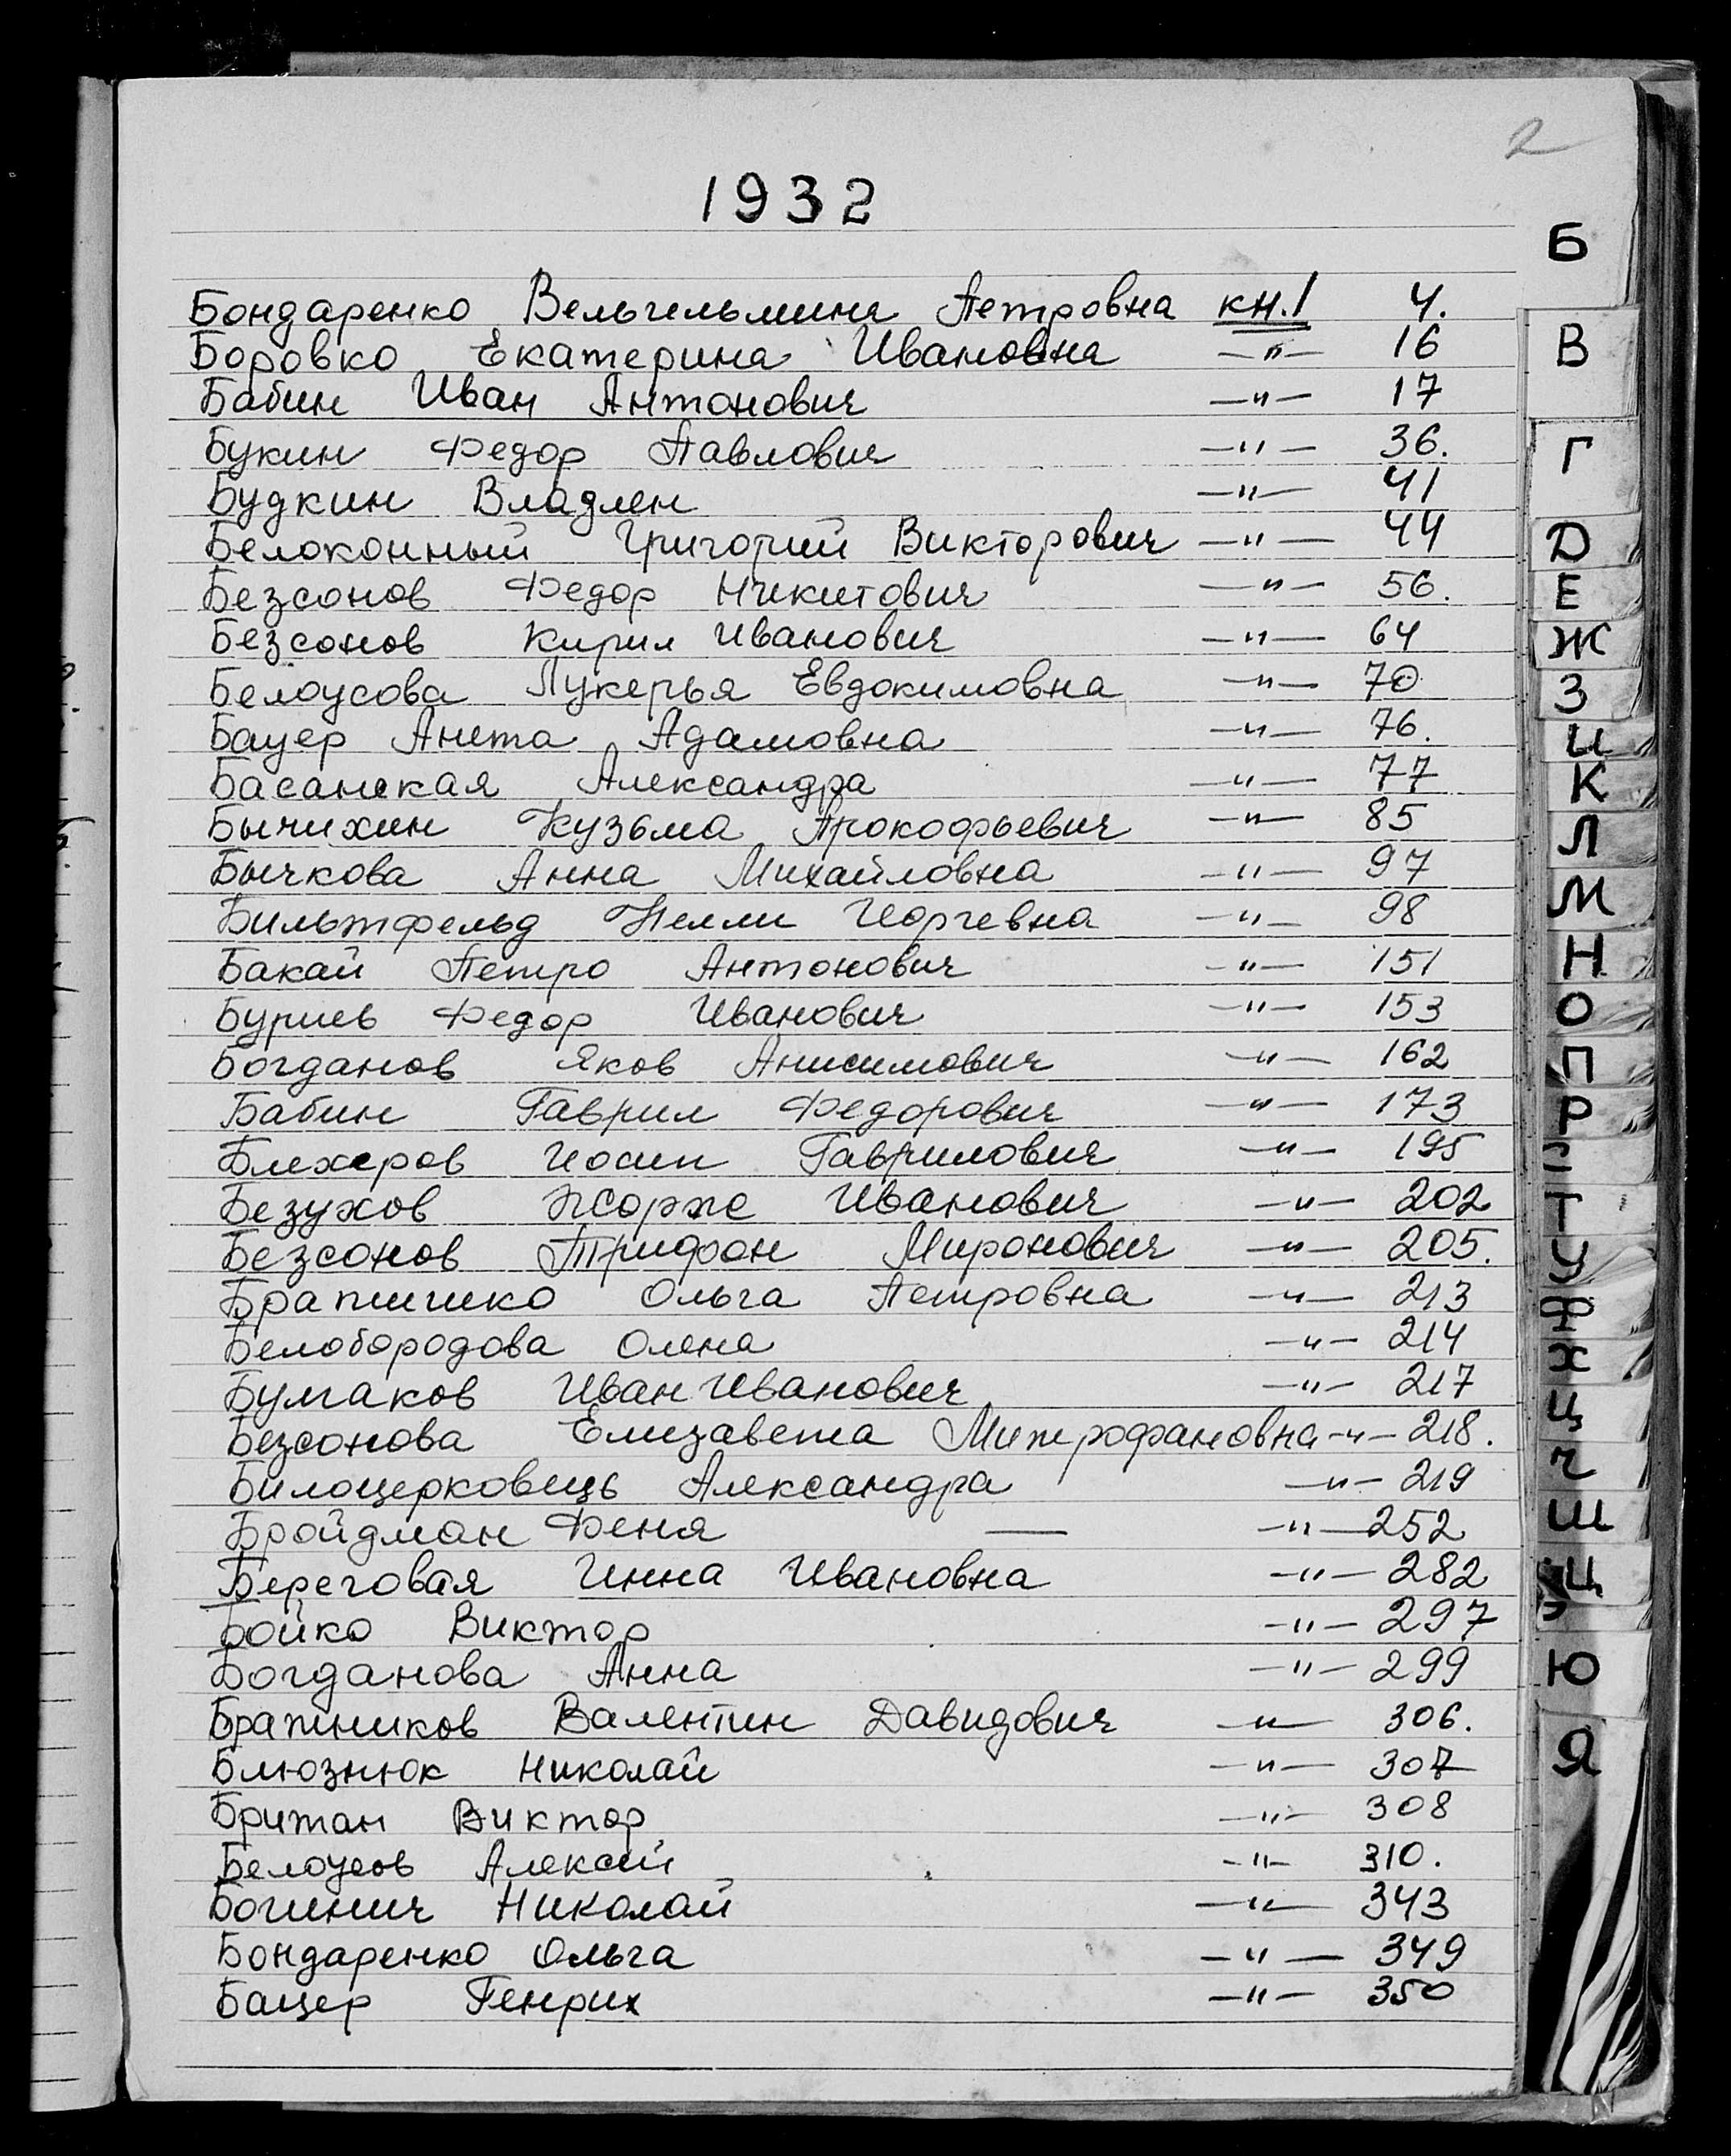 2
1932
Бондаренко Вельгельмина Петровна кн.1 4.
Боровко Екатерина Ивановна —"— 16
Бабин Иван Антонович —"— 17
Букин Федор Павлович —"— 36.
Будкин Владлен —"— 41
Белоконный Григорий Викторович —"— 44
Безсонов Федор Никитович —"— 56.
Безсонов Кирил Иванович —"— 64
Белоусова Лукерья Евдокимовна —"— 70
Бауер Анета Адамовна —"— 76.
Басанская Александра —"— 77
Бычихин Кузьма Прокофьевич —"— 85
Бычкова Анна Михайловна —"— 97
Бильтфельд Нелли Георгевна —"— 98
Бакай Петро Антонович —"— 151
Буриев Федор Иванович —"— 153
Богданов Яков Анисимович —"— 162
Бабин Гаврил Федорович —"— 173
Блехеров Иосип Гаврилович —"— 195
Безухов Жорже Иванович —"— 202
Безсонов Трифон Миронович —"— 205.
Ольга Петровна —"— 213
Белобородова Олена —"— 214
Булгаков Иван Иванович —"— 217
Безсонова Елизавета Митрофановна —"— 218.
Билоцерковець Александра —"— 219
Бройдман Феня — —"— 252
Береговая Инна Ивановна —"— 282
Бойко Виктор —"— 297
Богданова Анна —"— 299
Бражников Валентин Давидович —"— 306.
Блюзнюк Николай —"— 307
Британ Виктор —"— 308
Белоусов Алексей —"— 310.
Богинич Николай —"— 343
Бондаренко Ольга —"— 349
Бацер Генрих —"— 350
Б
В
Г
Д
Е
Ж
З
И
К
Л
М
Н
О
П
Р
Т
У
Ф
Х
Ц
Ч
Ш
Щ
Ю
Я